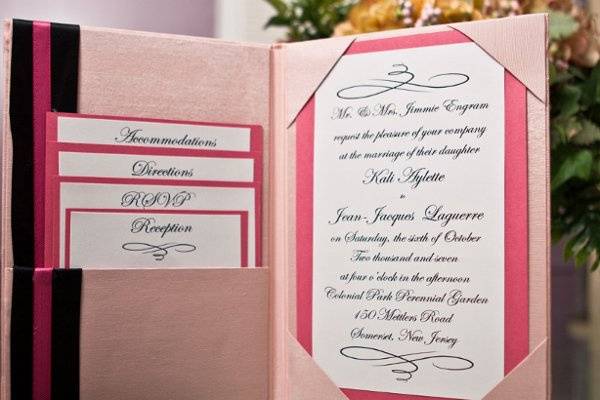 Accommodations
Directions
RSVP
Reception
Mr. & Mrs. Jimmie Engram
request the pleasure of your company
at the marriage of their daughter
Kali Aylette
to
Jean-Jacques Laguerre
on Saturday, the sixth of October
Two thousand and seven
at four o'clock in the afternoon
Colonial Park Perennial Garden
150 Mettlers Road
Somerset, New Jersey